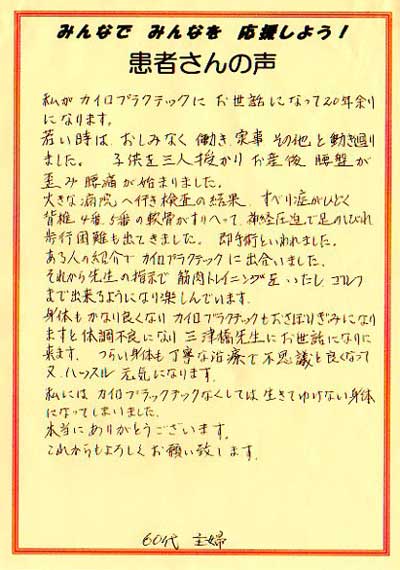 みんなで みんなを 応援しよう！
患者さんの声
私が カイロプラクテックに お世話になって20年余り
になります。
若い時は、おしみなく 働き、家事 その他と 動き廻り
ました。 子供を三人授かり お産後 腰盤が
歪み 腰痛が 始まりました。
大きな病院へ行き検査の結果、すべり症がひどく
背椎4番、5番の軟骨がすりへって、神経圧迫で足のしびれ
歩行困難も出てきました。 即手術といわれました。
ある人の紹介で カイロプラクテックに 出合いました。
それから先生の指示で 筋肉トレイニングをいたし ゴルフ
まで出来るようになり楽しんでいます。
身体もかなり良くなり カイロプラクテックもおさぼりぎみになり
ますと体調不良になり 三津橋先生にお世話になりに
来ます。 つらい身体も丁寧な治療で不思議と良くなって
又、ハッスル 元気になります。
私には カイロプラックテックなくしては 生きてゆけない身体
になってしまいました。
本当に ありがとうございます。
これからもよろしくお願い致します。
60代 主婦